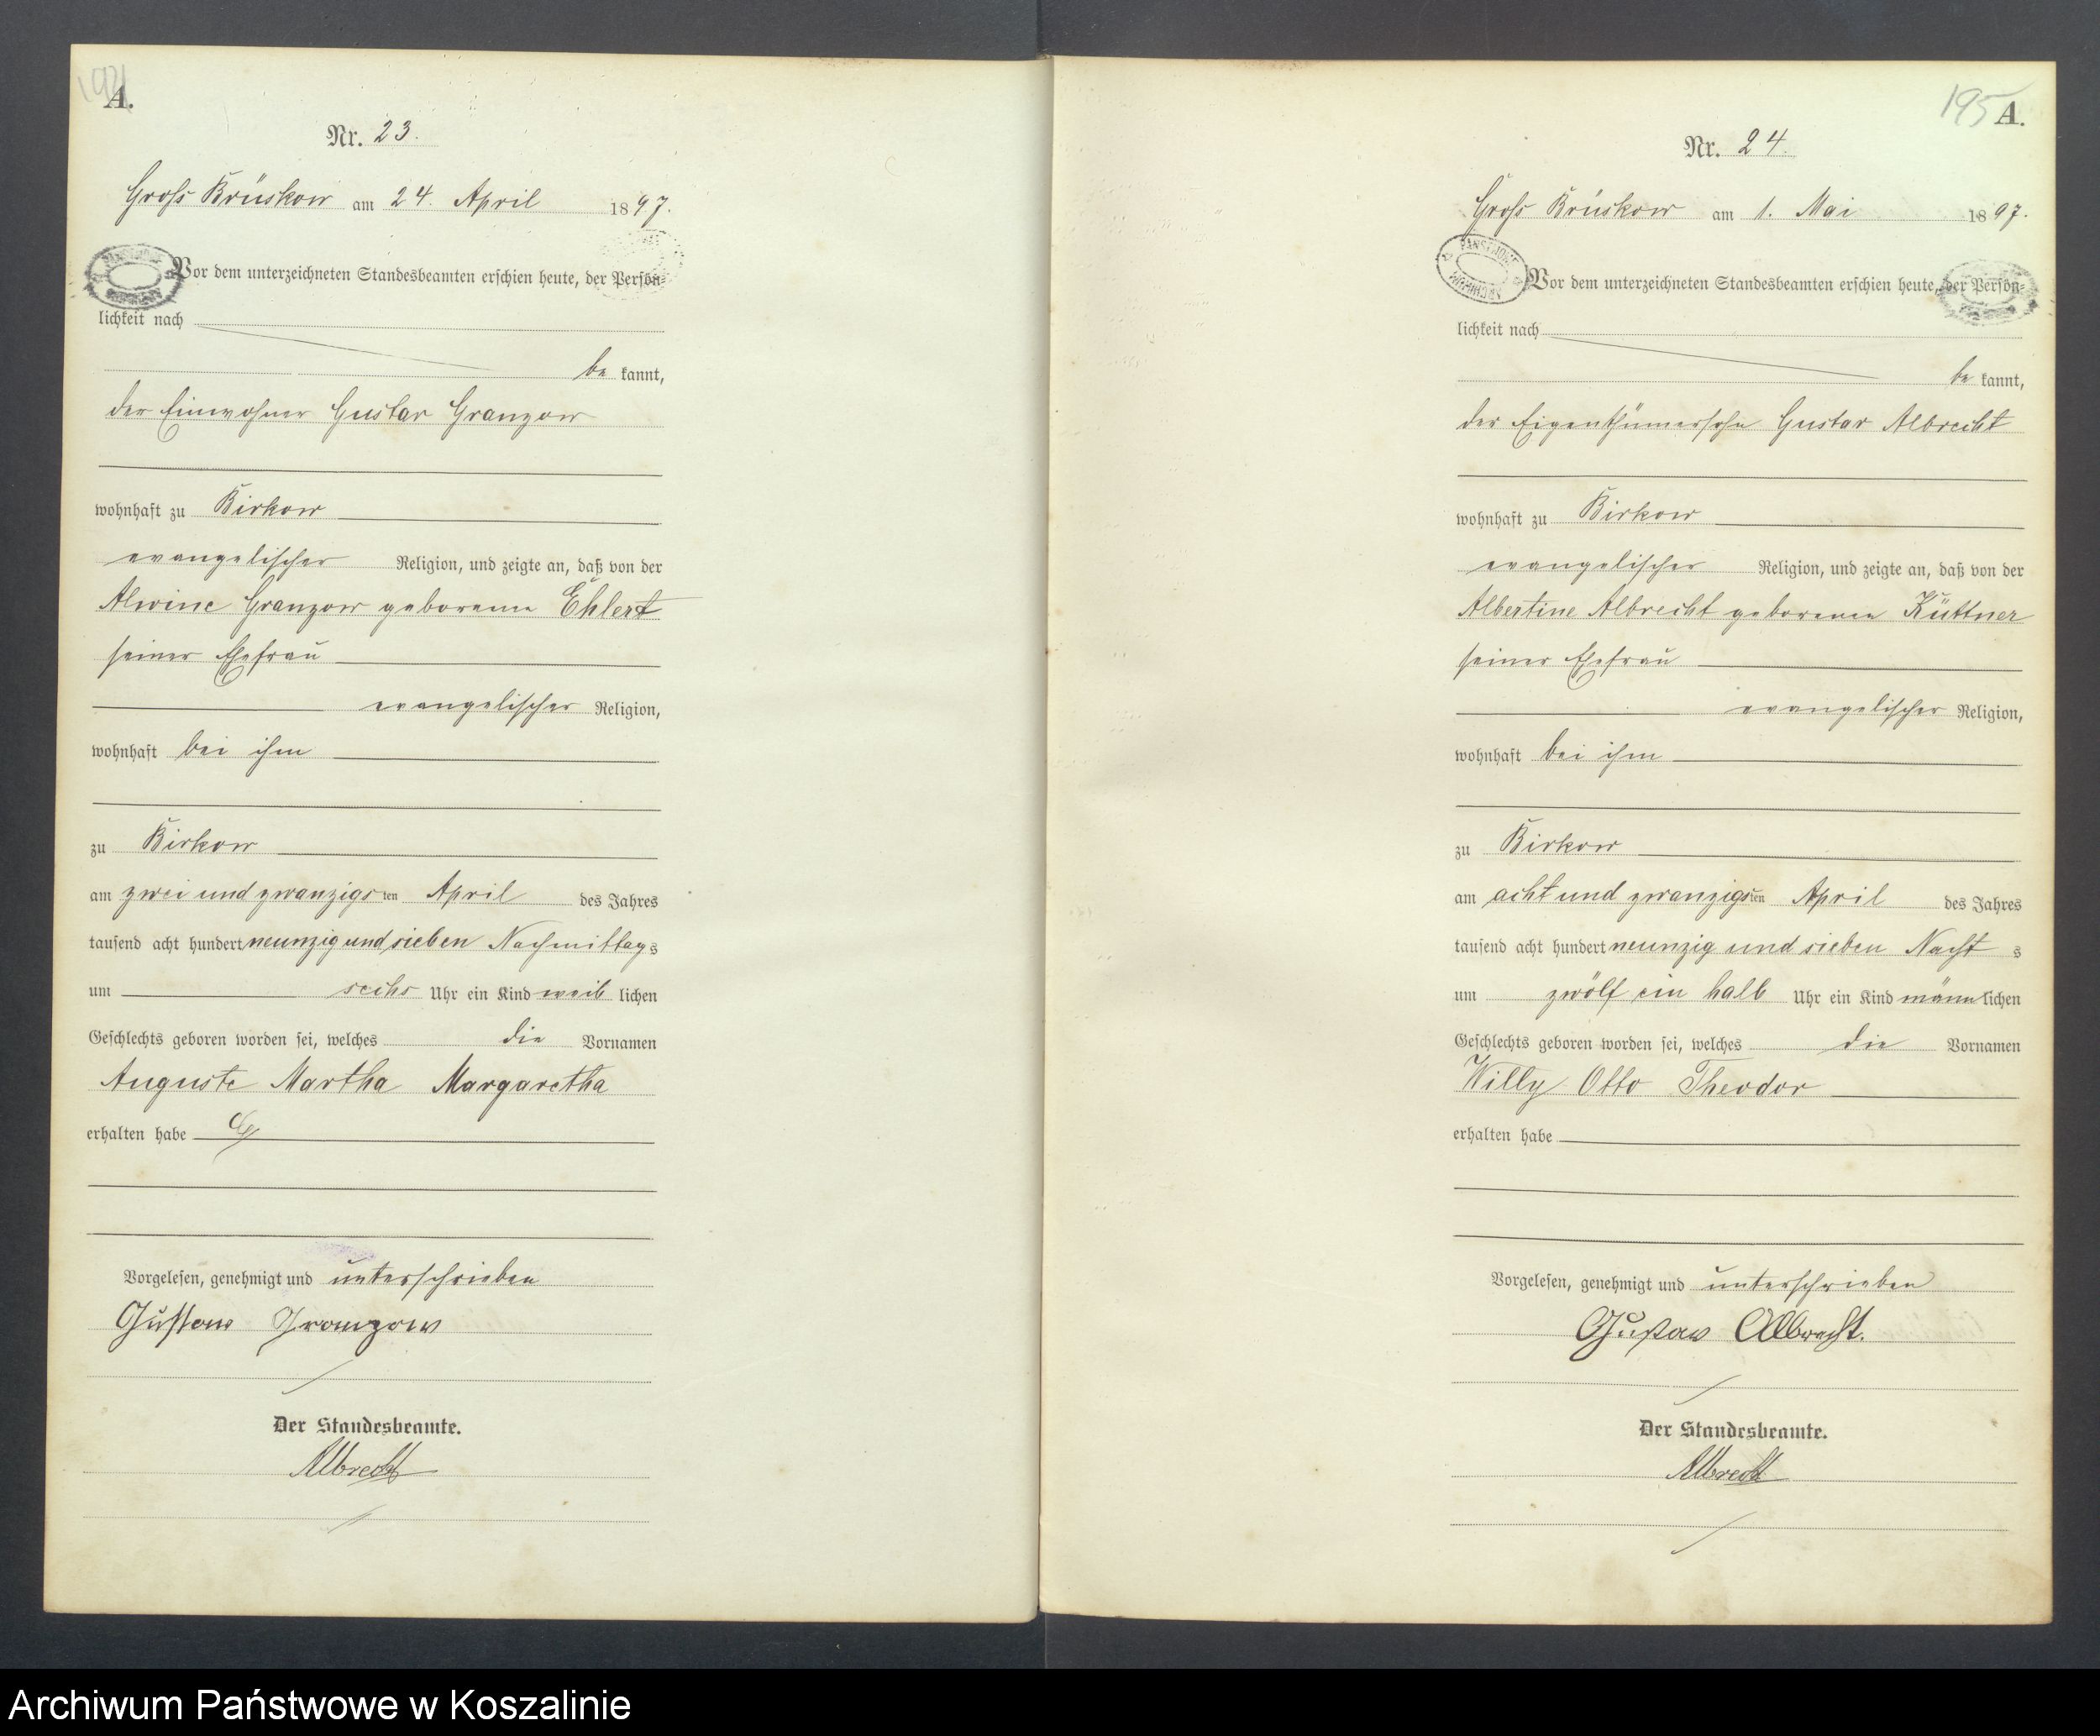 A.
Nr. 23.
Groß Brüskow am 24. April 1897.
Vor dem unterzeichneten Standesbeamten erschien heute, der Persön-
lichkeit nach
be kannt,
der Einwohner Gustav Granzow
wohnhaft zu Birkow
evangelischer Religion, und zeigte an, daß von der
Alwine Granzow geborenen Ehlert
seiner Ehefrau
evangelischer Religion,
wohnhaft bei ihm
zu Birkow
am zwei und zwanzigsten April des Jahres
tausend acht hundert neunzig und sieben Nachmittags
um sechs Uhr ein Kind weib lichen
Geschlechts geboren worden sei, welches die Vornamen
Auguste Martha Margaretha
erhalten habe
Vorgelesen, genehmigt und unterschrieben
Gustaw Granzow
Der Standesbeamte.
Albrecht
195 A.
Nr. 24.
Groß Brüskow am 1. Mai 1897.
Vor dem unterzeichneten Standesbeamten erschien heute, der Persön-
lichkeit nach
be kannt,
der Eigenthümersohn Gustav Albrecht
wohnhaft zu Birkow
evangelischer Religion, und zeigte an, daß von der
Albertine Albrecht geborenen Küttner
seiner Ehefrau
evangelischer Religion,
wohnhaft bei ihm
zu Birkow
am acht und zwanzigsten April des Jahres
tausend acht hundert neunzig und sieben Nacht s
um zwölf ein halb Uhr ein Kind männ lichen
Geschlechts geboren worden sei, welches die Vornamen
Willy Otto Theodor
erhalten habe
Vorgelesen, genehmigt und unterschrieben
Gustav Albrecht.
Der Standesbeamte.
Albrecht
Archiwum Państwowe w Koszalinie